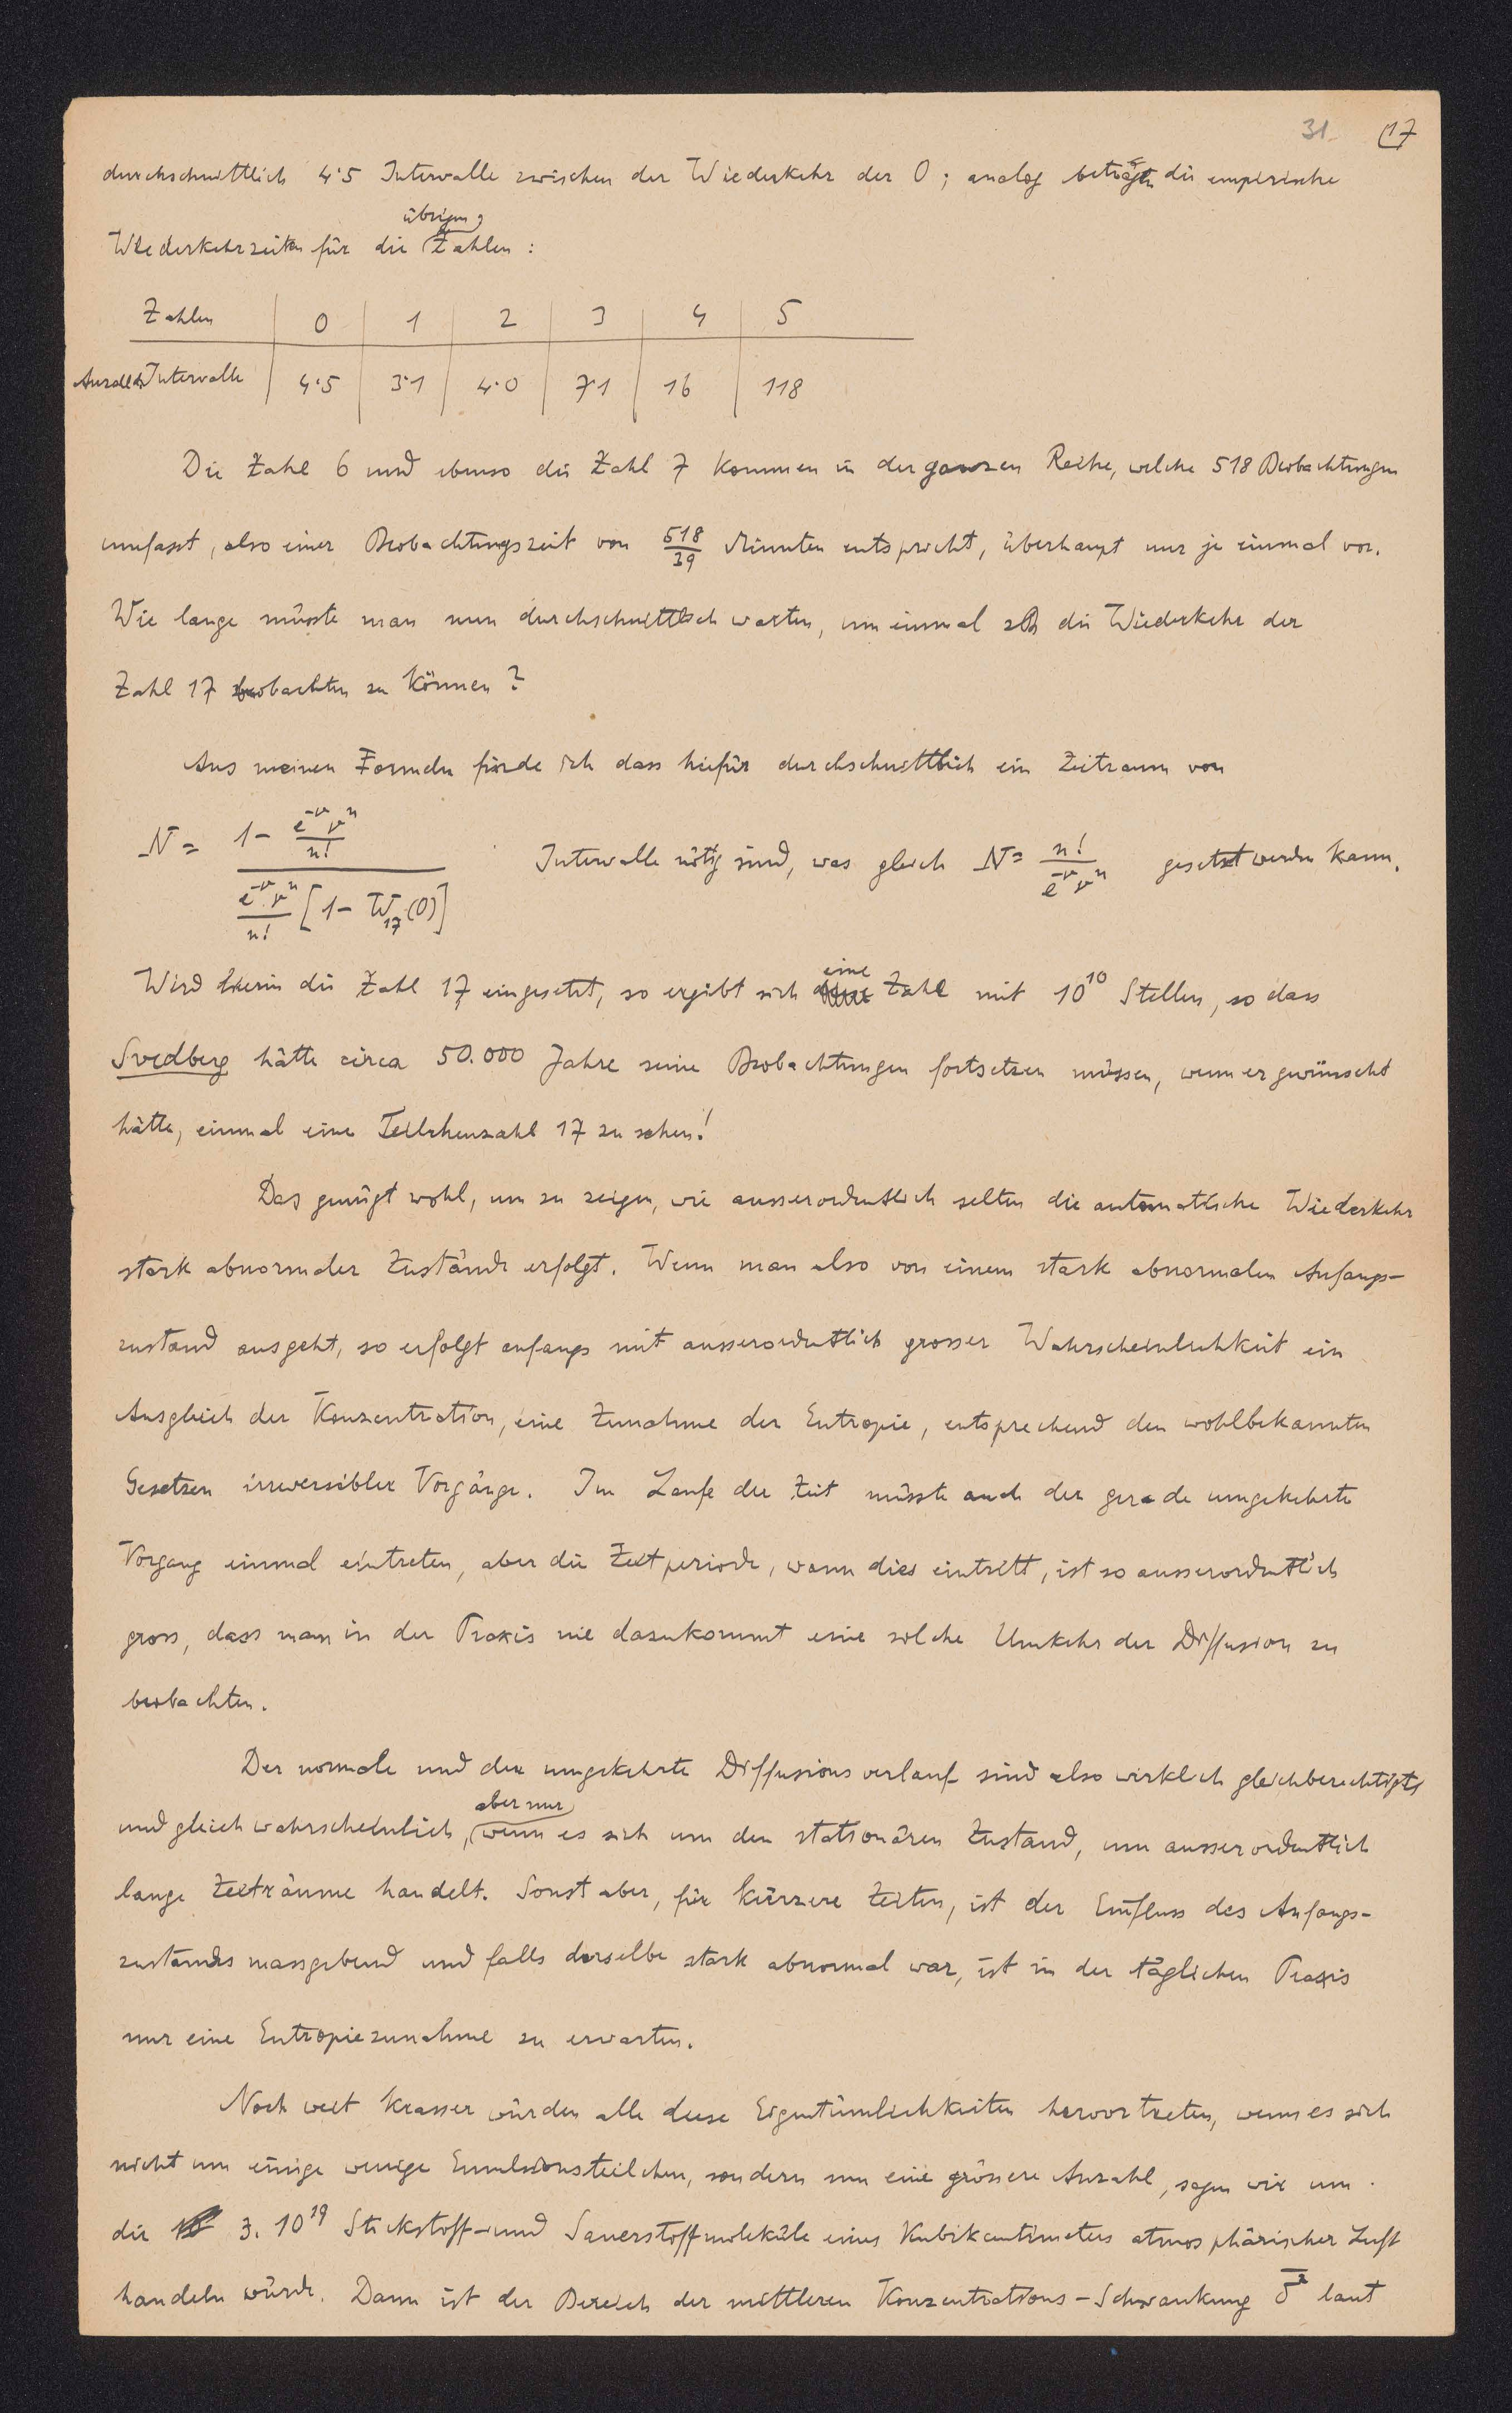 31 17
durchschnittlich 4·5 Intervalle zwischen der Wiederkehr der 0; analog betragen die empirische
übrigen
Wiederkehrzeiten für die Zahlen:
Zahlen | 0 | 1 | 2 | 3 | 4 | 5
Anzahl d. Intervalle | 4·5 | 3·1 | 4·0 | 7·1 | 16 | 118
Die Zahl 6 und ebenso die Zahl 7 kommen in der ganzen Reihe, welche 518 Beobachtungen
umfasst, also einer Beobachtungszeit von 518/39 Minuten entspricht, überhaupt nur je einmal vor.
Wie lange müsste man nun durchschnittlich warten, um einmal zB die Wiederkehr der
Zahl 17 beobachten zu können?
Aus meinen Formeln finde ich dass hiefür durchschnittlich ein Zeitraum von
N = (1 - e^{-ν} ν^n / n!) / (e^{-ν} ν^n / n! [1 - W_{17}(0)]) Intervalle nötig sind, was gleich N = n! / (e^{-ν} ν^n) gesetzt werden kann.
Wird hierin die Zahl 17 eingesetzt, so ergibt sich eine Zahl mit 10^{10} Stellen, so dass
Svedberg hätte circa 50.000 Jahre seine Beobachtungen fortsetzen müssen, wenn er gewünscht
hätte, einmal eine Teilchenzahl 17 zu sehen!
Das genügt wohl, um zu zeigen, wie ausserordentlich selten die automatische Wiederkehr
stark abnormaler Zustände erfolgt. Wenn man also von einem stark abnormalen Anfangs-
zustand ausgeht, so erfolgt anfangs mit ausserordentlich grosser Wahrscheinlichkeit ein
Ausgleich der Konzentration, eine Zunahme der Entropie, entsprechend den wohlbekannten
Gesetzen irreversibler Vorgänge. Im Laufe der Zeit müsste auch der gerade umgekehrte
Vorgang einmal eintreten, aber die Zeitperiode, wann dies eintritt, ist so ausserordentlich
gross, dass man in der Praxis nie dazukommt eine solche Umkehr der Diffusion zu
beobachten.
Der normale und der umgekehrte Diffusionsverlauf sind also wirklich gleichberechtigt
aber nur
und gleich wahrscheinlich, wenn es sich um den stationären Zustand, um ausserordentlich
lange Zeiträume handelt. Sonst aber, für kürzere Zeiten, ist der Einfluss des Anfangs-
zustandes massgebend und falls derselbe stark abnormal war, ist in der täglichen Praxis
nur eine Entropiezunahme zu erwarten.
Noch weit krasser würden alle diese Eigentümlichkeiten hervortreten, wenn es sich
nicht um einige wenige Emulsionsteilchen, sondern um eine grössere Anzahl, sagen wir um
die 3. 10^{19} Stickstoff- und Sauerstoffmoleküle eines Kubikcentimeters atmosphärischer Luft
handeln würde. Dann ist der Bereich der mittleren Konzentrations-Schwankung \overline{δ^2} laut